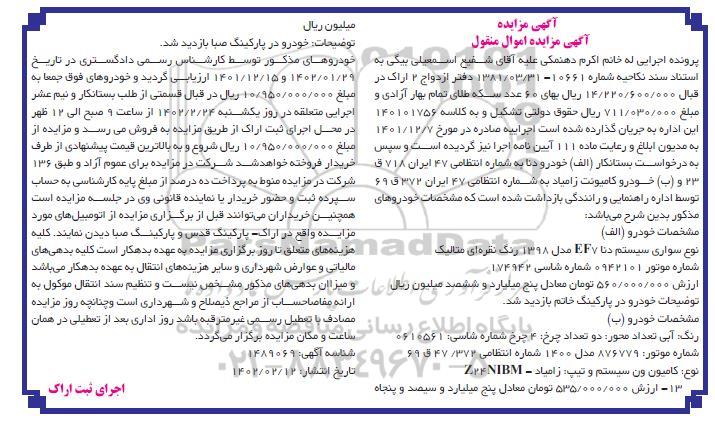 آگهی مزایده
آگهی مزایده اموال منقول
پرونده اجرایی له خانم اکرم دهنمکی علیه آقای شفیع اسمعیلی بیگی به
استناد سند نکاحیه شماره ۱۰۶۶۱–۱۳۸۱/۰۳/۳۱ دفتر ازدواج ۲ اراک در
قبال ۱۴/۲۲۰/۶۰۰/۰۰۰ ریال بهای ۶۰ عدد سکه طلای تمام بهار آزادی و
مبلغ ۷۱۱/۰۳۰/۰۰۰ ریال حقوق دولتی تشکیل و به کلاسه ۱۴۰۱۰۱۷۵۶
این اداره به جریان گذارده شده است اجراییه صادره در مورخ ۱۴۰۱/۱۲/۷
به مدیون ابلاغ و رعایت ماده ۱۱۱ آیین نامه اجرا نیز گردیده است و سپس
به درخواست بستانکار (الف) خودرو دنا به شماره انتظامی ۴۷ ایران ۷۱۸ ق
۲۳ و (ب) خودرو کامیونت زامیاد به شماره انتظامی ۴۷ ایران ۳۷۲ ق ۶۹
توسط اداره راهنمایی و رانندگی بازداشت شده است که مشخصات خودروهای
مذکور بدین شرح می‌باشد:
مشخصات خودرو (الف)
نوع سواری سیستم دنا EF۷ مدل ۱۳۹۸ رنگ نقره‌ای متالیک
شماره موتور ۰۹۴۲۱۰۱ شماره شاسی ۱۷۴۹۴۲
ارزش ۵۶۰/۰۰۰/۰۰۰ تومان معادل پنج میلیارد و ششصد میلیون ریال
توضیحات خودرو در پارکینگ خاتم بازدید شد.
مشخصات خودرو (ب)
رنگ: آبی تعداد محور: دو تعداد چرخ: ۴ چرخ شماره شاسی: ۰۶۱۰۵۶۱
شماره موتور: ۸۷۶۷۷۹ مدل ۱۴۰۰ شماره انتظامی ۳۷۲/ ۴۷ ق ۶۹
نوع: کامیون ون سیستم و تیپ: زامیاد – Z۲۴NIBM
۱۳– ارزش ۵۳۵/۰۰۰/۰۰۰ تومان معادل پنج میلیارد و سیصد و پنجاه
میلیون ریال
توضیحات: خودرو در پارکینگ صبا بازدید شد.
خودروهای مذکور توسط کارشناس رسمی دادگستری در تاریخ
۱۴۰۲/۰۱/۲۹ و ۱۴۰۱/۱۲/۱۵ ارزیابی گردید و خودروهای فوق جمعا به
مبلغ ۱۰/۹۵۰/۰۰۰/۰۰۰ ریال در قبال قسمتی از طلب بستانکار و نیم عشر
اجرایی متعلقه در روز یکشنبه ۱۴۰۲/۲/۲۴ از ساعت ۹ صبح الی ۱۲ ظهر
در محل اجرای ثبت اراک از طریق مزایده به فروش می رسد و مزایده از
مبلغ ۱۰/۹۵۰/۰۰۰/۰۰۰ ریال شروع و به بالاترین قیمت پیشنهادی از طرف
خریدار فروخته خواهدشد شرکت در مزایده برای عموم آزاد و طبق ۱۳۶
شرکت در مزایده منوط به پرداخت ده درصد از مبلغ پایه کارشناسی به حساب
سپرده ثبت و حضور خریدار یا نماینده قانونی وی در جلسه مزایده است
همچنین خریداران می‌توانند قبل از برگزاری مزایده از اتومبیل‌های مورد
مزایده واقع در اراک– پارکینگ قدس و پارکینگ صبا دیدن نمایند. کلیه
هزینه‌های متعلق تا روز برگزاری مزایده به عهده بدهکار است کلیه بدهی‌های
مالیاتی و عوارض شهرداری و سایر هزینه‌های انتقال به عهده بدهکار می‌باشد
و میزان بدهی‌های مذکور مشخص نیست و تنظیم سند انتقال موکول به
ارائه مفاصاحساب از مراجع ذیصلاح و شهرداری است وچنانچه روز مزایده
مصادف با تعطیل رسمی غیرمترقبه باشد روز اداری بعد از تعطیلی در همان
ساعت و مکان مزایده برگزار می‌گردد.
شناسه آگهی: ۱۴۸۹۰۶۹
تاریخ انتشار: ۱۴۰۲/۰۲/۱۲
اجرای ثبت اراک
ParsNamadData
پایگاه اطلاع رسانی مناقصه و مزایده